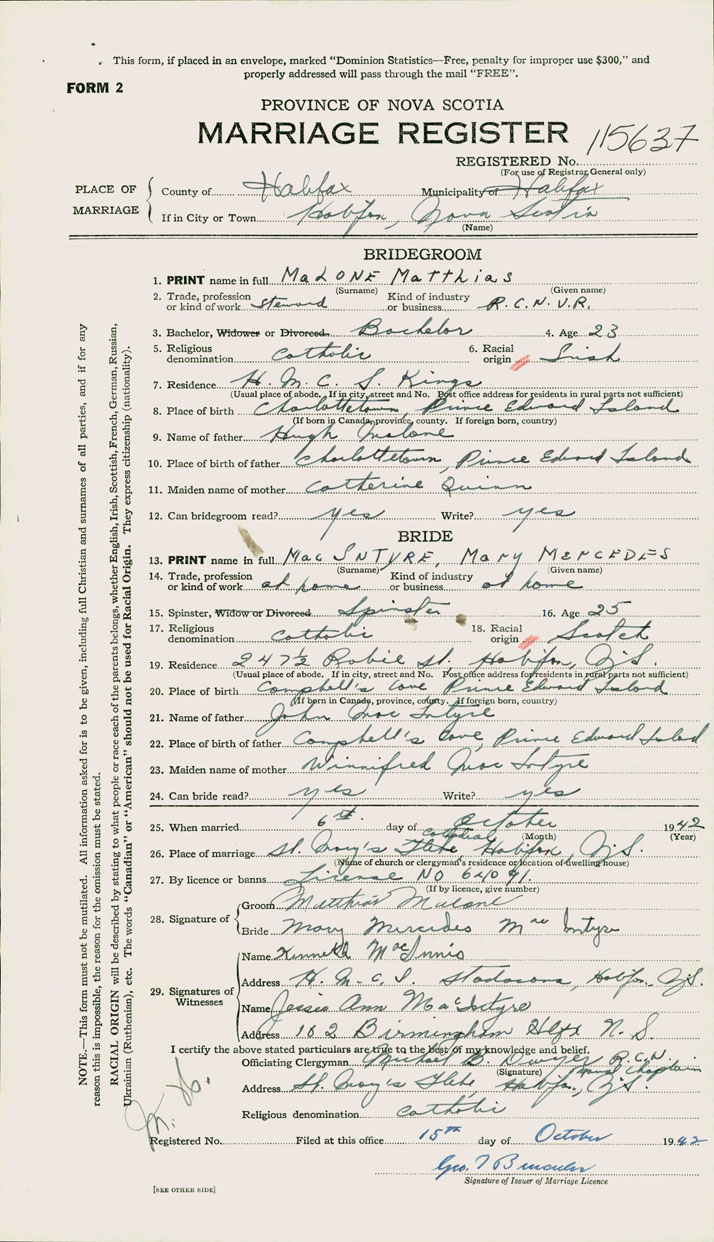 This form, if placed in an envelope, marked "Dominion Statistics—Free, penalty for improper use $300," and
properly addressed will pass through the mail "FREE".
FORM 2
PROVINCE OF NOVA SCOTIA
MARRIAGE REGISTER 115637
REGISTERED No.
(For use of Registrar General only)
PLACE OF MARRIAGE
County of Halifax Municipality of Halifax
If in City or Town Halifax, Nova Scotia
(Name)
BRIDEGROOM
1. PRINT name in full MALONE Matthias
(Surname) (Given name)
2. Trade, profession or kind of work Steward Kind of industry or business R.C.N.V.R.
3. Bachelor, Widower or Divorced Bachelor 4. Age 23
5. Religious denomination Catholic 6. Racial origin Irish
7. Residence H.M.C.S. Kings
(Usual place of abode. If in city, street and No. Post office address for residents in rural parts not sufficient)
8. Place of birth Charlottetown, Prince Edward Island
(If born in Canada, province, county. If foreign born, country)
9. Name of father Hugh Malone
10. Place of birth of father Charlottetown, Prince Edward Island
11. Maiden name of mother Catherine Quinn
12. Can bridegroom read? yes Write? yes
BRIDE
13. PRINT name in full MacINTYRE, MARY MERCEDES
(Surname) (Given name)
14. Trade, profession or kind of work at home Kind of industry or business at home
15. Spinster, Widow or Divorced Spinster 16. Age 25
17. Religious denomination Catholic 18. Racial origin Scotch
19. Residence 247½ Robie St. Halifax, N.S.
(Usual place of abode. If in city, street and No. Post office address for residents in rural parts not sufficient)
20. Place of birth Campbell's Cove Prince Edward Island
(If born in Canada, province, county. If foreign born, country)
21. Name of father John MacIntyre
22. Place of birth of father Campbell's Cove, Prince Edward Island
23. Maiden name of mother Winnifred MacIntyre
24. Can bride read? yes Write? yes
25. When married 6th day of October 1942
(Month) (Year)
26. Place of marriage St. Mary's Cathedral Halifax, N.S.
(Name of church or clergyman's residence or location of dwelling house)
27. By licence or banns License No 64091.
(If by licence, give number)
28. Signature of
Groom Matthias Malone
Bride Mary Mercedes MacIntyre
29. Signatures of Witnesses
Name Kenneth MacInnis
Address H.M.C.S. Stadacona, Halifax, N.S.
Name Jessie Ann MacIntyre
Address 162 Birmingham Hlfx N.S.
I certify the above stated particulars are true to the best of my knowledge and belief.
Officiating Clergyman Michael B. Dwyer R.C.N.
(Signature) Naval Chaplain
Address St. Mary's Halifax, N.S.
Religious denomination Catholic
Registered No. Filed at this office 15th day of October 1942
Geo.
Signature of Issuer of Marriage Licence
[SEE OTHER SIDE]
NOTE.—This form must not be mutilated. All information asked for is to be given, including full Christian and surnames of all parties, and if for any
reason this is impossible, the reason for the omission must be stated.
RACIAL ORIGIN will be described by stating to what people or race each of the parents belongs, whether English, Irish, Scottish, French, German, Russian,
Ukrainian (Ruthenian), etc. The words "Canadian" or "American" should not be used for Racial Origin. They express citizenship (nationality).